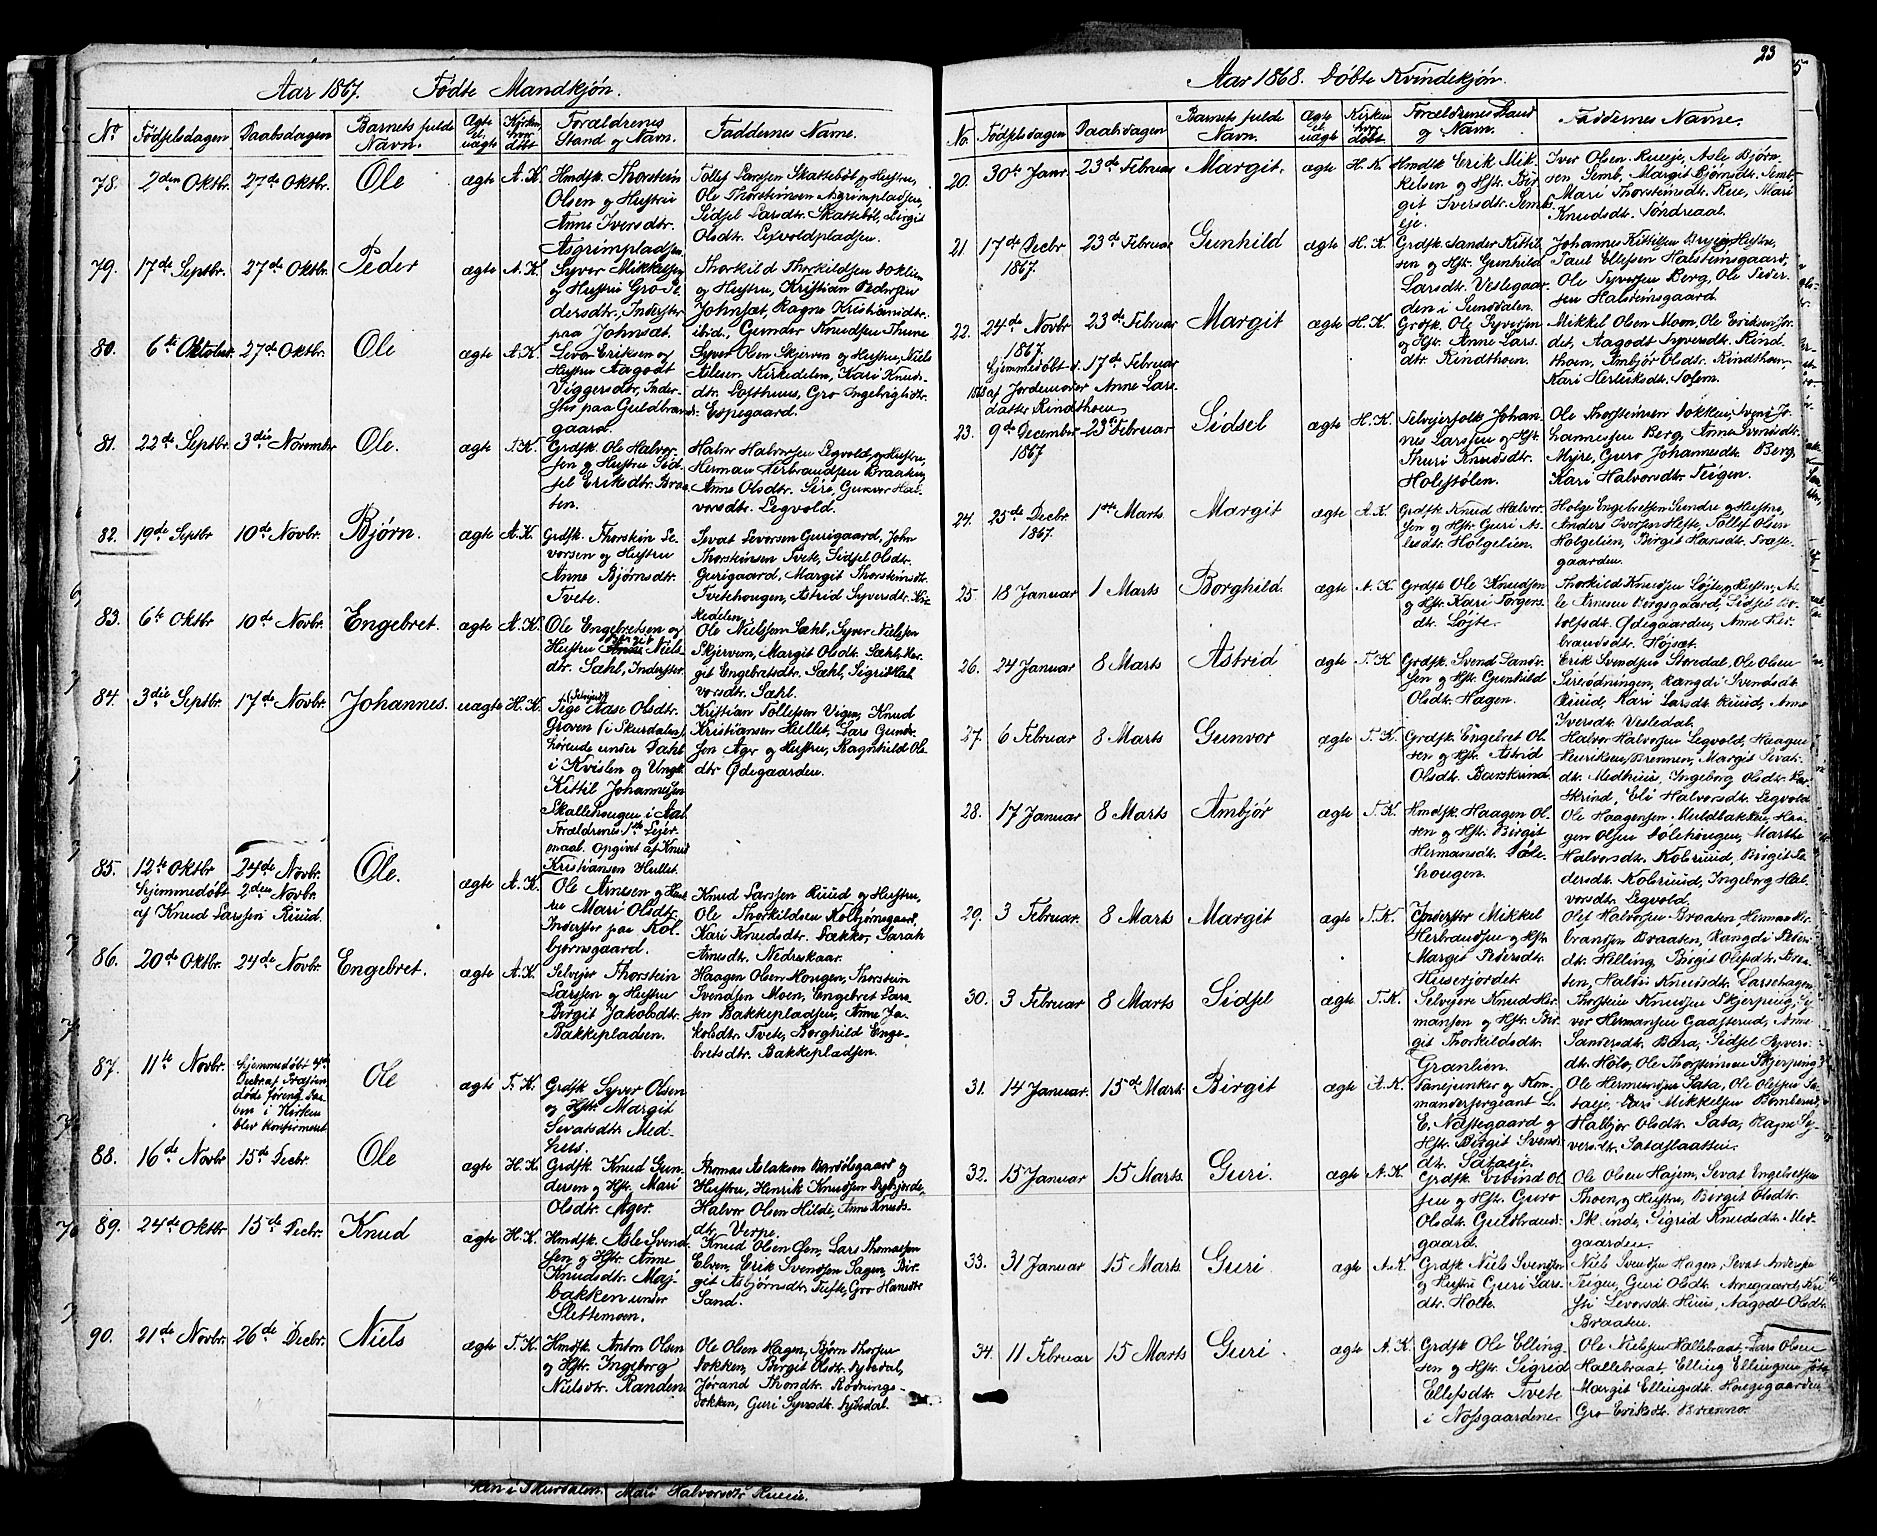 Aar 1867. Fødte Mandkjøn.
No Fødselsdagen Daabsdagen Barnets fulde Navn. Ægte el. uægte Kirken hvor døbt Forældrenes Stand og Navn. Faddernes Navne.
78. 2den Oktbr. 27de Oktbr. Ole ægte A.K.
Hmdsk. Thorstein
Olsen og Hustru
Anne Iversdtr.
Asgrimpladsen.
Tollef Larssen Skattebøl og Hustru,
Ole Thorsteinsen Asgrimpladsen,
Sidsel Larsdtr. Skattebøl, Birgit
Olsdtr. Lexvoldpladsen.
79. 17de Septbr. 27de Oktbr. Peder ægte A.K.
Syver Mikkelsen
og Hustru Gro Pe
dersdtr, Inderster
paa Johnsæt.
Thorkild Thorkildsen Doklien
og Hustru, Kristian Pedersen
Johnsæt, Ragne Kristiansdtr.
ibid, Gunder Knudsen Thune
80. 6te Oktober. 27de Oktbr. Ole ægte A.K.
Levor Eriksen og
Hustru Aagodt
Viggersdtr, Inder-
ster paa Guldbrands-
gaard.
Syver Olsen Skjerven og Hustru, Niels
Nilsen Kirkedelen, Kari Knuds-
dtr. Lofthuus, Gro Ingebrigtsdtr.
Espegaard.
81. 22de Septbr. 3die November Ole. ægte T.K.
Grdsk. Ole Halvor
sen og Hustru Sid
sel Eriksdtr. Braa
ten.
Halvor Halvorsen Legvold, og Hustru,
Herman Herbrandsen Braaten,
Anne Olsdtr. Sire, Gunvor Hal
vorsdtr. Legvold.
82. 19de Septbr 10de Novbr. Bjørn. ægte A.K.
Grdsk. Thorstein Le
vorsen og Hustru
Anne Bjørnsdtr.
Tvete.
Sevat Levorsen Gurigaard, John
Thorsteinsen Tvete, Sidsel Olsdtr.
Gurigaard, Margit Thorsteinsdtr.
Tvetehougen, Astrid Syversdtr. Kir
kedelen.
83. 6te Oktbr 10de Novbr. Engebret. ægte A.K.
Ole Engebretsen og
Hustru Niels
dtr. Sahl, Inderster
Ole Nielssen Sæhl, Syver Nielssen
Skjervem, Margit Olsdtr. Sæhl, Mar
git Engebretsdtr. Sæhl, Sigrid Hal
vorsdtr. Sæhl.
84. 3die Septbr. 17de Novbr. Johannes. uægte H.K.
Pige Aase Olsdtr.
Groven (i Skurdalen)
hørende under Dahl
i Kvislen og Ungk.
Kittil Johannessen
Skallehougen i Aal
Forældrenes 1ste Leier
maal. Opgivet af Knud
Kristiansen Hullet.
Kristian Tollefsen Vigen, Knud
Kristiansen Hullet, Lars Gunder
sen Ager og Hustru, Ragnhild Ole
dtr Ødegaarden.
85. 12te Oktbr 24de Novbr. Ole. ægte A.K.
Hjemmedøbt 2den Novbr.
af Knud Larssen Ruud.
Ole Arnesen og Hust
ru Mari Olsdtr.
Inderster paa Kol
bjørnsgaard.
Knud Larssen Ruud og Hustru,
Ole Thorkildsen Kolbjørnsgaard,
Kari Knudsdtr. Dække, Sarah
Arnesdtr. Nedreskaar.
86. 20de Oktbr. 24de Novbr. Engebret. ægte A.K.
Selvejer Thorstein
Larssen og Hustru
Birgit Jakobsdtr.
Bakkepladsen.
Haagen Olsen Mongen, Thorstein
Svendsen Moen, Engebret Lars-
sen Bakkepladsen, Anne Ja
kobsdtr. Tvete, Borghild Enge-
bretsdtr. Bakkepladsen.
87. 11te Novbr. Ole ægte T.K.
Hjemmedøbt
Decbr. af Præsten
døde foreng. Daa
ben i Kirken
blev konfirmeret
Grdsk Syver Olsen
og Hstr. Margit
Sevatsdtr. Med-
huus.
88. 16de Novbr 15de Decbr. Ole ægte H.K.
Grdsk. Knud Gun
dersen og Hstr. Mari
Olsdtr. Ager.
Thomas Aslaksen Bardølegaard og
Hustru, Henrik Knudsen Nybjorde,
Halvor Olsen Hilde, Anne Knuds-
dtr. Verpe.
89. 24de Oktbr 15de Decbr. Knud ægte H.K.
Hmdsk. Asle Svend
sen og Hstr. Anne
Knudsdtr. Maj
bakken under
Slettemoen.
Knud Olsen Øen, Lars Thomassen
Elven, Erik Svendsen Sagen, Bir
git Asbjørnsdtr. Tufte, Gro Hansdtr
Sand.
90. 21de Novbr. 26de Decbr. Niels ægte T.K.
Hmdsk. Anton Olsen
og Hstr. Ingeborg
Nielsdtr. Randen
Ole Olsen Hagen, Bjørn Thorsen
Dokken, Birgit Olsdtr. Nybsdal,
Jørand Thordtr. Rødnings-
dokken, Guri Syversdtr. Nybsdal.
Skurdalen. Mari Halvorsdtr Rueie.
23
Aar 1868. Døbte Kvindekjøn.
No. Fødselsdagen Daabsdagen Barnets fulde Navn. Ægte el. uægte Kirken hvor døbt Forældrenes Stand og Navn. Faddernes Navne.
20. 30te Janr. 23de Februar Margit. ægte H.K.
Hmdsk Erik Mik
kelsen og Hstr. Bir
git Iversdtr. Semb
eje.
Iver Olsen Rueeje, Asle Bjørn-
sen Semb, Margit Bjørnsdtr. Semb
Mari Thorsteinsdtr. Rue, Mari
Knudsdtr. Søndreaal.
21 17de Decbr 1867. 23de Februar Gunhild ægte H.K.
Grdsk Sander Kittil
sen og Hstr. Gunhild
Larsdtr. Veslegaar
den i Sunddalen.
Johannes Kittilsen og Hustru,
Paul Ellefsen Halsteinsgaard,
Ole Syversen Berg, Ole Peder
sen Halsteinsgaard
22. 24de Novbr 1867. 23de Februar Margit ægte H.K.
Hjemmedøbt d. 17de Februar
1868 af Jordemoder Anne Lars
datter Rindthoen
Grdsk. Ole Syversen
og Hstr. Anne Lars
dtr. Rindthoen.
Mikkel Olsen Moen, Ole Eriksen Jor
det, Aagodt Syversdtr. Rind
thoen, Ambjør Olsdtr. Rindthoen,
Kari Herleiksdtr. Solem.
23. 9de December 1867 23de Februar Sidsel ægte H.K.
Selvejerfolk Johan
nes Larssen og Hstr.
Thuri Knudsdtr.
Holestølen.
Ole Thorsteinsen Dokken, Svend Jo
hannessen Berg, Anne Svendsdtr.
Myre, Guro Johannesdtr. Berg,
Kari Halvorsdtr. Teigen.
24. 25de Decbr. 1867. 1ste Marts Margit ægte A.K
Grdsk Knud Halvor
sen og Hstr. Guri As
lesdtr. Holgelien.
Holge Engebretsen Sundre og Hustru,
Anders Iversen Hefte, Tollef Olsen
Holgelien, Birgit Hansdtr. Præste
gaarden.
25. 18 Januar 1 Marts Borghild. ægte A.K
Grdsk Ole Knudsen
og Hstr. Kari Torgers
dtr. Løjte.
Thorkild Knudsen Løjte og Hustru, As
le Arnesen Børgegaard, Sidsel Bo
tolfsdtr. Ødegaarden, Anne Her
brandsdtr. Højsæt.
26. 24 Januar 8 Marts Astrid ægte T.K
Grdsk Svend Sander
sen og Hstr. Gunhild
Olsdtr. Hagen.
Erik Svendsen Stordal, Ole Olsen
Sirerødningen, Rangdi Svendsdtr
Ruud, Kari Larsdtr. Ruud, Anne
Iversdtr. Vesledal,
27. 6 Februar 8 Marts Gunvor ægte T.K.
Grdsk. Engebret Ol
sen og Hstr. Astrid
Olsdtr. Barskrind
Halvor Halvorsen Legvold, Haagen
Henriksen, Brennen, Margit Sevat-
dtr. Medhuus, Ingeborg Olsdtr. Bar
skrind, Eli Halvorsdtr. Legvold
28. 17 Januar 8 Marts Ambjør ægte T.K.
Hmdsk. Haagen Ol
sen og Hstr. Birgit
Hermansdtr. Døle-
hougen.
Ole Haagensen Muldbakken, Haa
gen Olsen Dølehougen, Marthe
Halvorsdtr. Kolsruud, Birgit Pe
dersdtr. Kolsruud, Ingeborg Hal
vorsdtr. Legvold.
29. 3 Februar. 8 Marts Margit ægte T.K.
Inderster Mikkel
Herbrandsen og Hstr
Margit Pedersdtr.
Huserjordet
Olet Halvorsen Braaten, Herman Her
brandsen Braaten, Rangdi Peders
dtr. Helling, Birgit Olsdtr. Braa
ten, Haldis Knudsdtr. Lassehagen
30. 3 Februar 8 Marts Sidsel ægte T.K.
Selvejere Knud Her
mansen og Hstr. Bir
git Thorkildsdtr.
Grønlien.
Thorstein Knudsen Skjerping, Sy
ver Hermansen Gaasterud, Anne
Sandersdtr. Børa, Sidsel Syvers
dtr. Holo, Ole Thorsteinsen Skjerping
31. 14 Januar 15de Marts. Birgit ægte A.K
Fanejunker og Kom
mandersergeant L.
E. Næstegaard og
Hstr. Birgit Svends
dtr. Sataeje.
Ole Hermundsen Sata, Ole Olssen Sa
taeje, Lars Mikkelsen Bomberud,
Halbjør Olsdtr. Sata, Ragne Sy-
versdtr. Sataslaatten.
32. 15 Januar 15 Marts Guri. ægte A.K.
Grdsk. Eivind Ol
sen og Hstr. Guro
Olsdtr. Guldbrands-
gaard.
Ole Olsen Hajem, Sevat Engebretsen
Thoen, og Hustru, Birgit Olsdtr.
Skrinde, Sigrid Knudsdtr. Med-
gaarden.
33. 31 Januar 15 Marts Guri. ægte A.K
Grdsk Niels Svendsen
og Hustru Guri Lars-
dtr. Holte.
Niels Svendsen Hagen, Sevat Andersen
Teigen, Guri Olsdtr. Arnegaard, Kri
sti Levorsdtr. Huus, Aagodt Olsdtr.
Braaten.
34. 11 Februar 15 Marts Guri. ægte A.K
Grdsk Ole Elling-
sen og Hstr. Sigrid
Ellefsdtr. Tvete
i Nøssgaardene.
Ole Nielsen Hallebraat, Lars Olsen
Hallebraat, Elling Ellingsen
Margit Ellingsdtr. Hougegaarden
Gro Eriksdtr. Brænno.